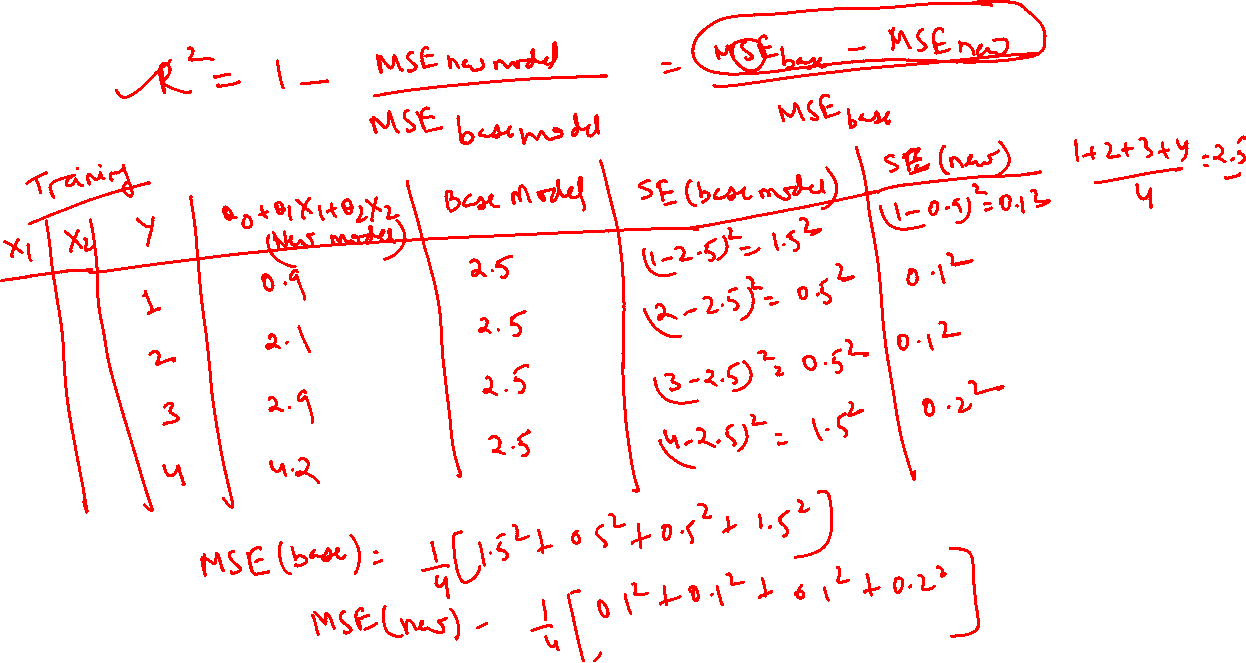 R² = 1 - MSE new model / MSE base model = MSE base - MSE new / MSE base
Training
X1 | X2 | Y | θ0+θ1X1+θ2X2 (New model) | Base Model | SE (base model) | SE (new)
1+2+3+4 / 4 = 2.5
1 | 0.9 | 2.5 | (1-2.5)² = 1.5² | (1-0.9)² = 0.1²
2 | 2.1 | 2.5 | (2-2.5)² = 0.5² | 0.1²
3 | 2.9 | 2.5 | (3-2.5)² = 0.5² | 0.1²
4 | 4.2 | 2.5 | (4-2.5)² = 1.5² | 0.2²
MSE (base) = 1/4 [1.5² + 0.5² + 0.5² + 1.5²]
MSE (new) - 1/4 [0.1² + 0.1² + 0.1² + 0.2²]